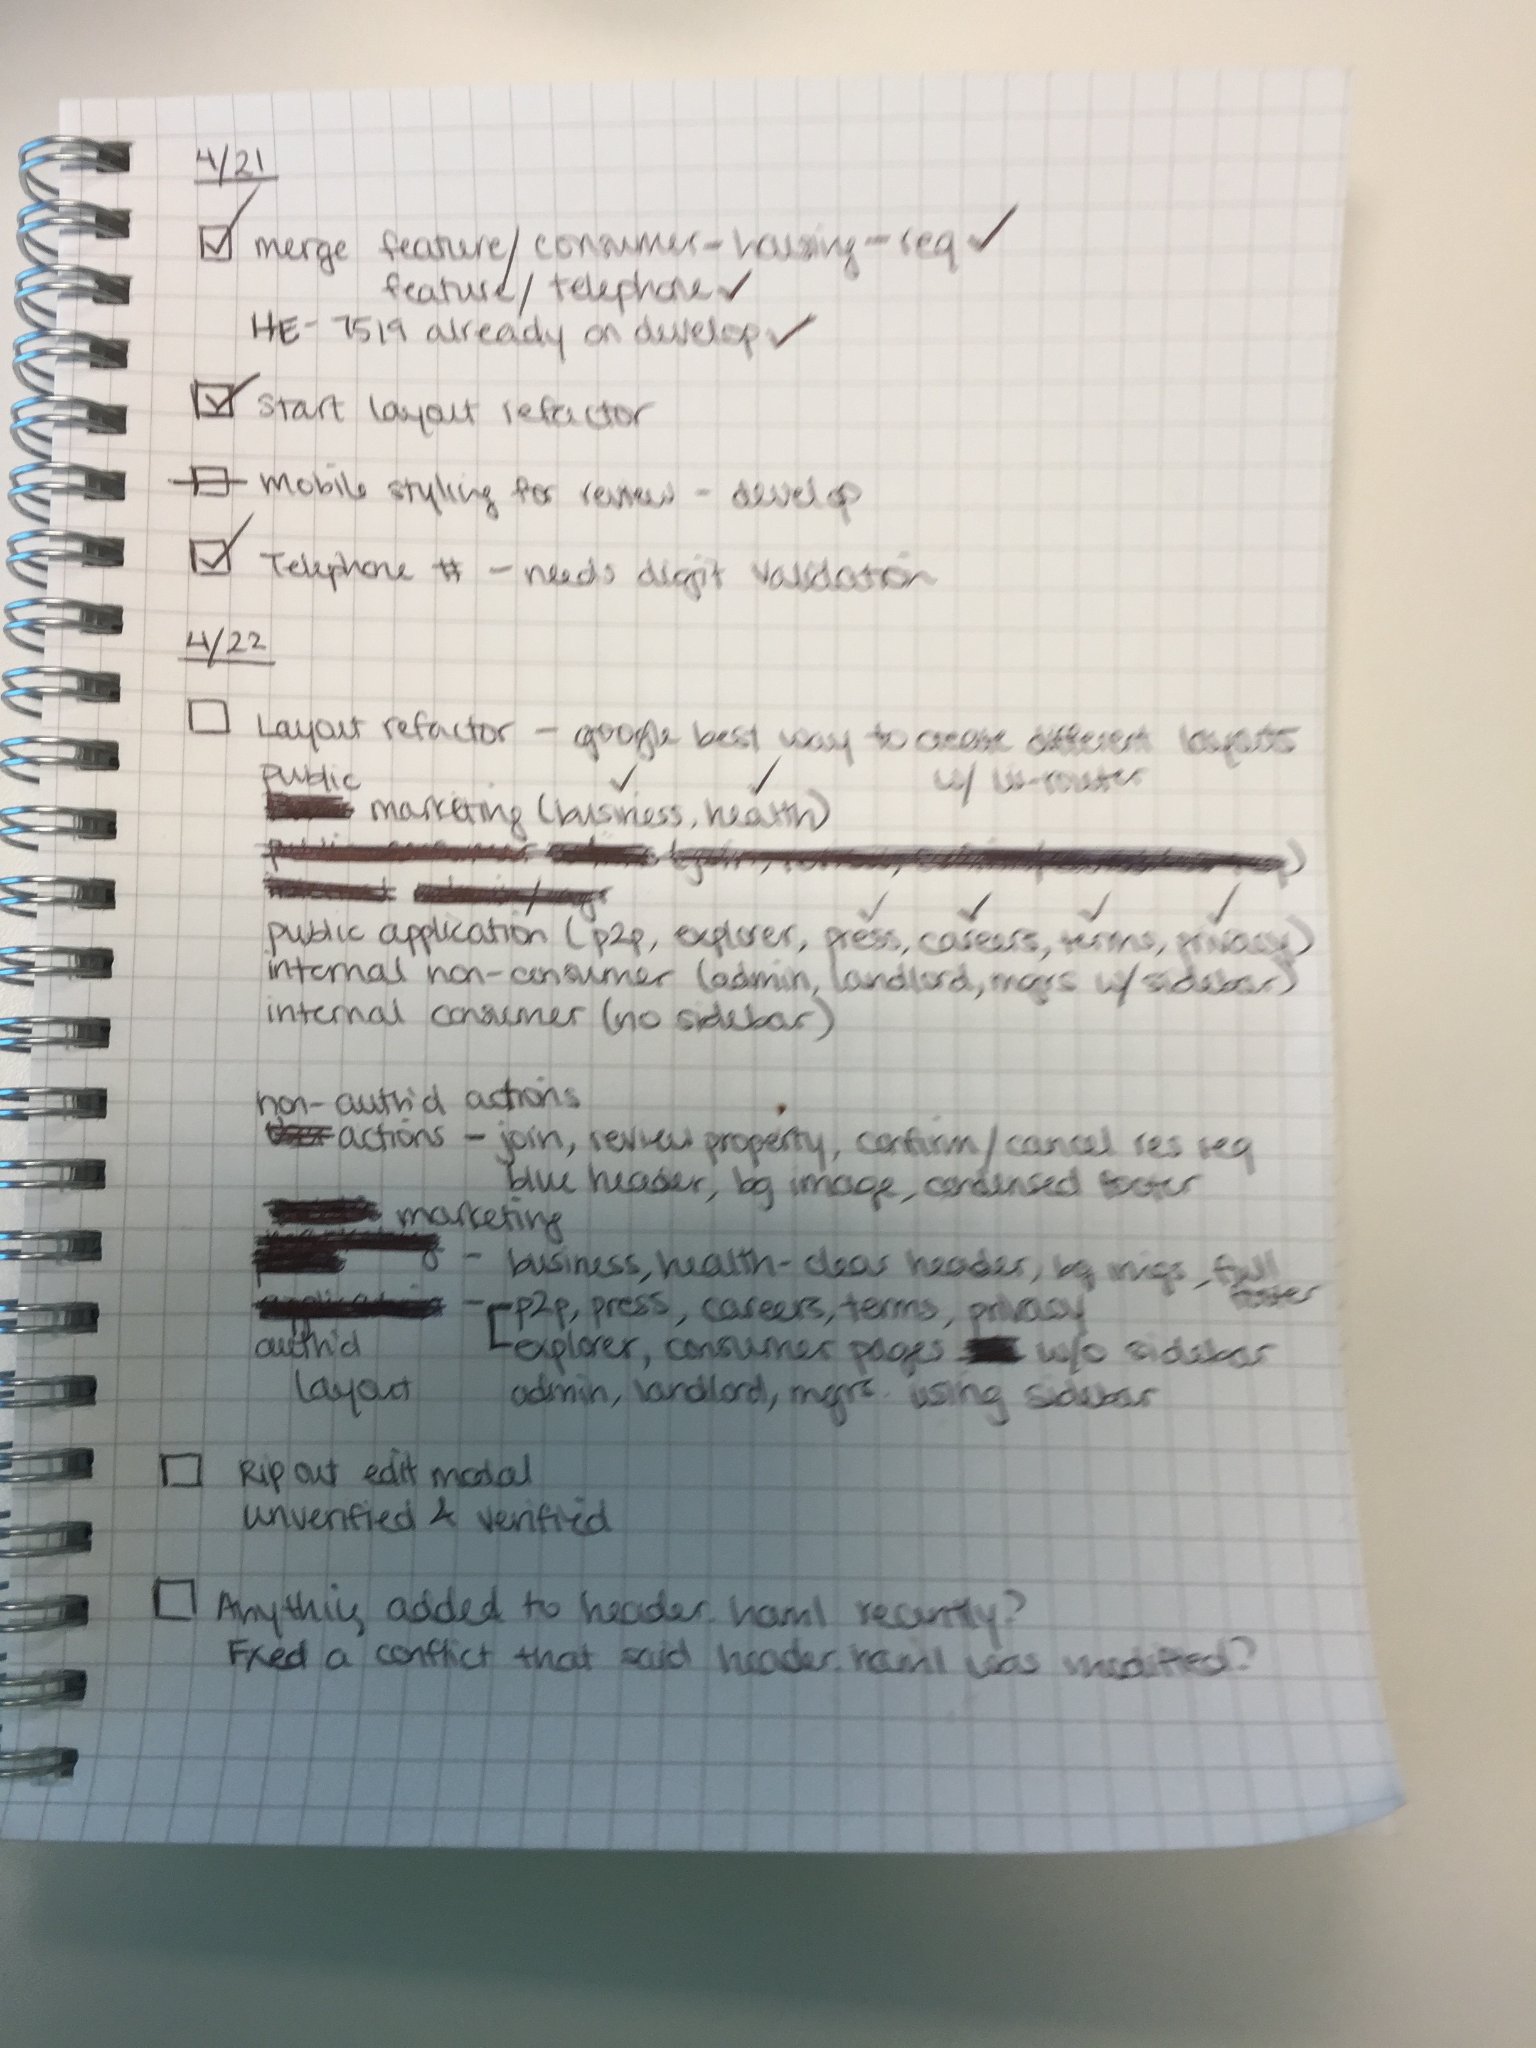 4/21
merge feature/consumer-housing-req ✓
feature/telephone ✓
HE-7519 already on develop ✓
start layout refactor
mobile styling for review - develop
Telephone # - needs digit validation
4/22
Layout refactor - google best way to create different layouts
w/ ui-router
public
marketing (business, health)
public application (p2p, explorer, press, careers, terms, privacy)
internal non-consumer (admin, landlord, mgrs w/ sidebar)
internal consumer (no sidebar)
non-auth'd actions
actions - join, review property, confirm/cancel res req
blue header, bg image, condensed footer
marketing
- business, health - clear header, bg imgs, full
footer
- p2p, press, careers, terms, privacy
auth'd explorer, consumer pages w/o sidebar
layout admin, landlord, mgrs using sidebar
Rip out edit modal
unverified & verified
Anything added to header.haml recently?
Fixed a conflict that said header.haml was modified?